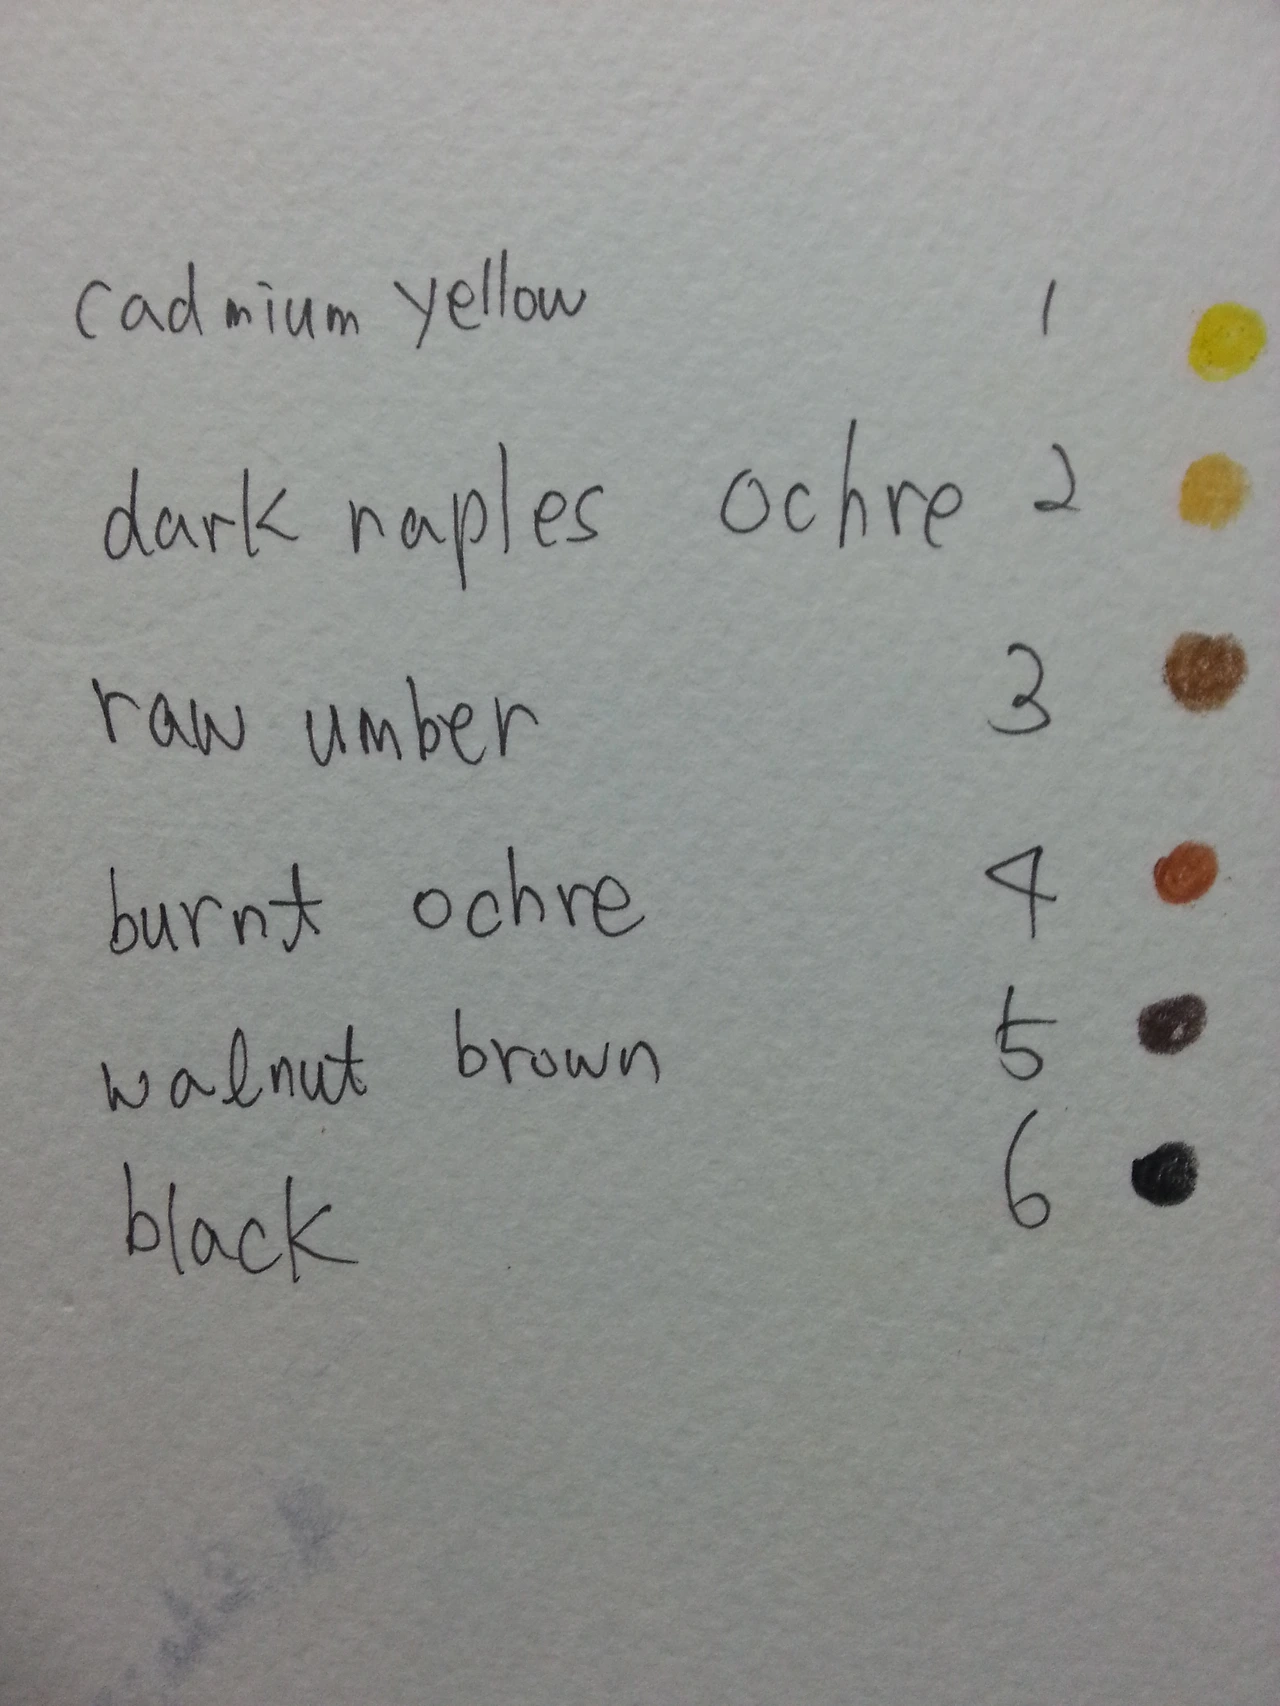 cadmium yellow 1
dark naples ochre 2
raw umber 3
burnt ochre 4
walnut brown 5
black 6